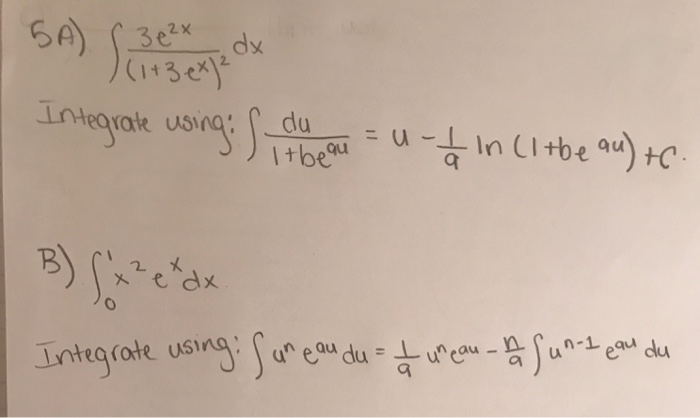 5A) ∫ 3e^{2x} / (1+3e^x)^2 dx
Integrate using: ∫ du / 1+be^{au} = u - 1/a ln (1+be^{au}) + C.
B) ∫_0^1 x^2 e^x dx
Integrate using: ∫ u^n e^{au} du = 1/a u^n e^{au} - n/a ∫ u^{n-1} e^{au} du